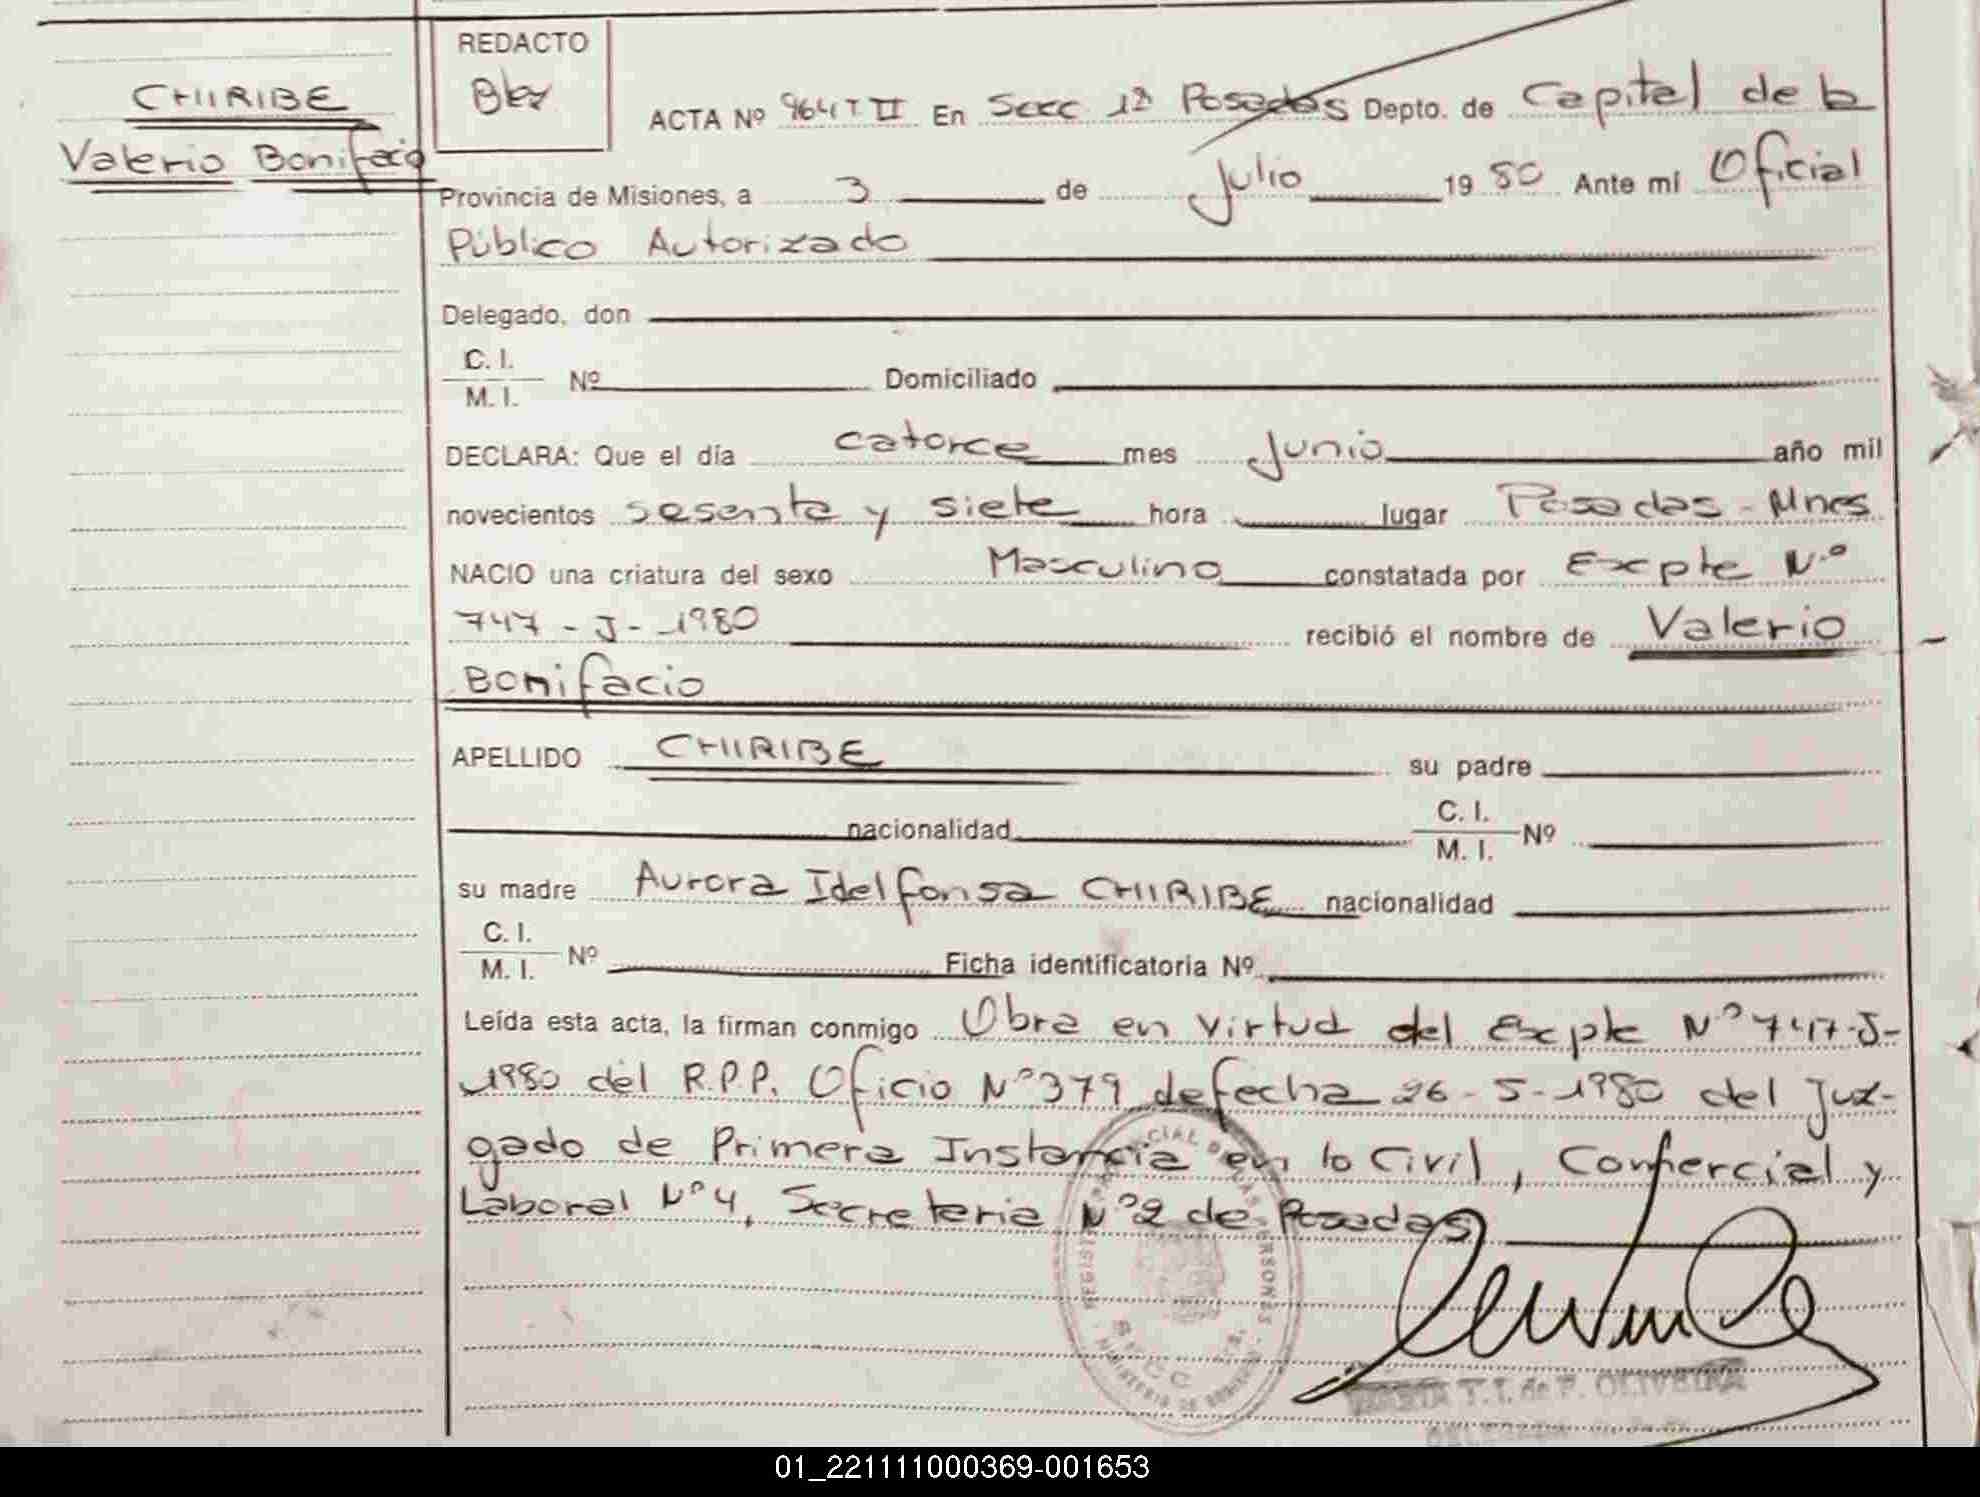 REDACTO
CHIRIBE
Valerio Bonifacio
ACTA Nº 964 T II En Secc 1ª Posadas Depto. de Capital de la
Provincia de Misiones, a 3 de Julio 19 80 Ante mi Oficial
Público Autorizado
Delegado, don
C. I.
M. I. Nº Domiciliado
DECLARA: Que el día catorce mes Junio año mil
novecientos sesenta y siete hora lugar Posadas - Mnes
NACIO una criatura del sexo Masculino constatada por Excpte N.º
747 - J - 1980 recibió el nombre de Valerio
Bonifacio
APELLIDO CHIRIBE su padre
nacionalidad C. I.
M. I. Nº
su madre Aurora Idelfonsa CHIRIBE nacionalidad
C. I.
M. I. Nº Ficha identificatoria Nº
Leída esta acta, la firman conmigo Obra en virtud del Excpte Nº 747-J-
1980 del R.P.P. Oficio Nº 379 de fecha 26-5-1980 del Juz-
gado de Primera Instancia en lo Civil, Comercial y
Laboral Nº 4, Secretaria Nº 2 de Posadas
T. I. de P. OLIVEIRA
01_221111000369-001653